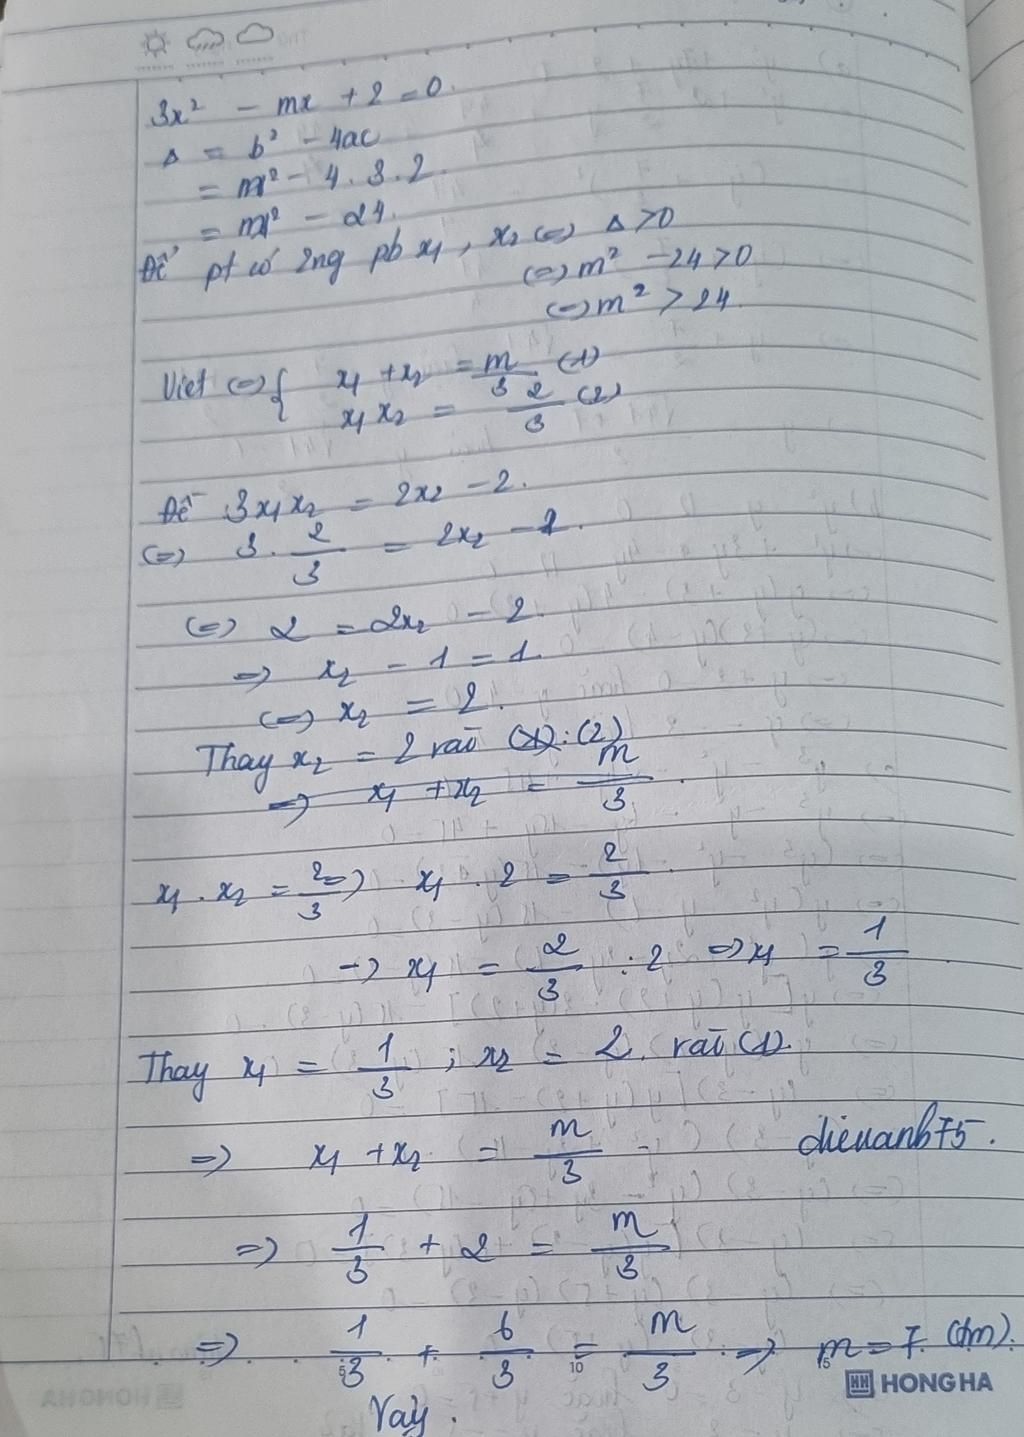 3x² - mx + 2 = 0.
Δ = b² - 4ac
= m² - 4 . 3 . 2.
= m² - 24.
Để pt có 2ng pb x₁, x₂ (=) Δ > 0
(=) m² - 24 > 0
(=) m² > 24.
Viet (=) { x₁ + x₂ = m/3 (1)
x₁ x₂ = 2/3 (2)
Để 3x₁x₂ = 2x₂ - 2.
(=) 3 . 2/3 = 2x₂ - 2.
(=) 2 = 2x₂ - 2.
=> x₂ - 1 = 1.
(=) x₂ = 2.
Thay x₂ = 2 vào (1): (2)
=> x₁ + x₂ = m/3.
x₁ . x₂ = 2/3 => x₁ . 2 = 2/3.
=> x₁ = 2/3 : 2 => x₁ = 1/3
Thay x₁ = 1/3 ; x₂ = 2. vào (1).
=> x₁ + x₂ = m/3
dieuanh75.
=> 1/3 + 2 = m/3
=> 1/3 + 6/3 = m/3 => m = 7 (tm).
5 10 15
HH HONG HA
Vậy.